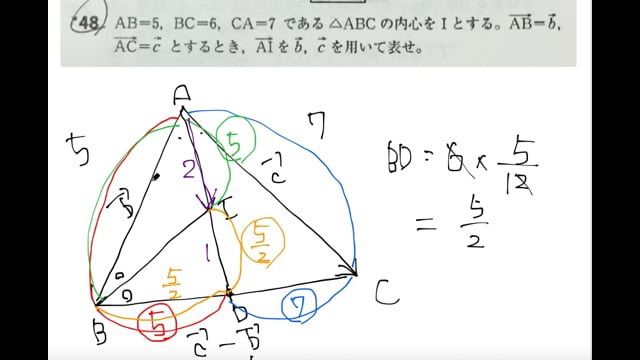 48 AB=5, BC=6, CA=7 である △ABC の内心を I とする。$\overrightarrow{AB}=\vec{b}$,
$\overrightarrow{AC}=\vec{c}$ とするとき, $\overrightarrow{AI}$ を $\vec{b}$, $\vec{c}$ を用いて表せ。
A
5
7
5
2
$\vec{c}$
$\vec{b}$
I
BD = 6 × 5/12
= 5/2
1
5/2
5/2
B
5
D
7
C
$\vec{c}-\vec{b}$